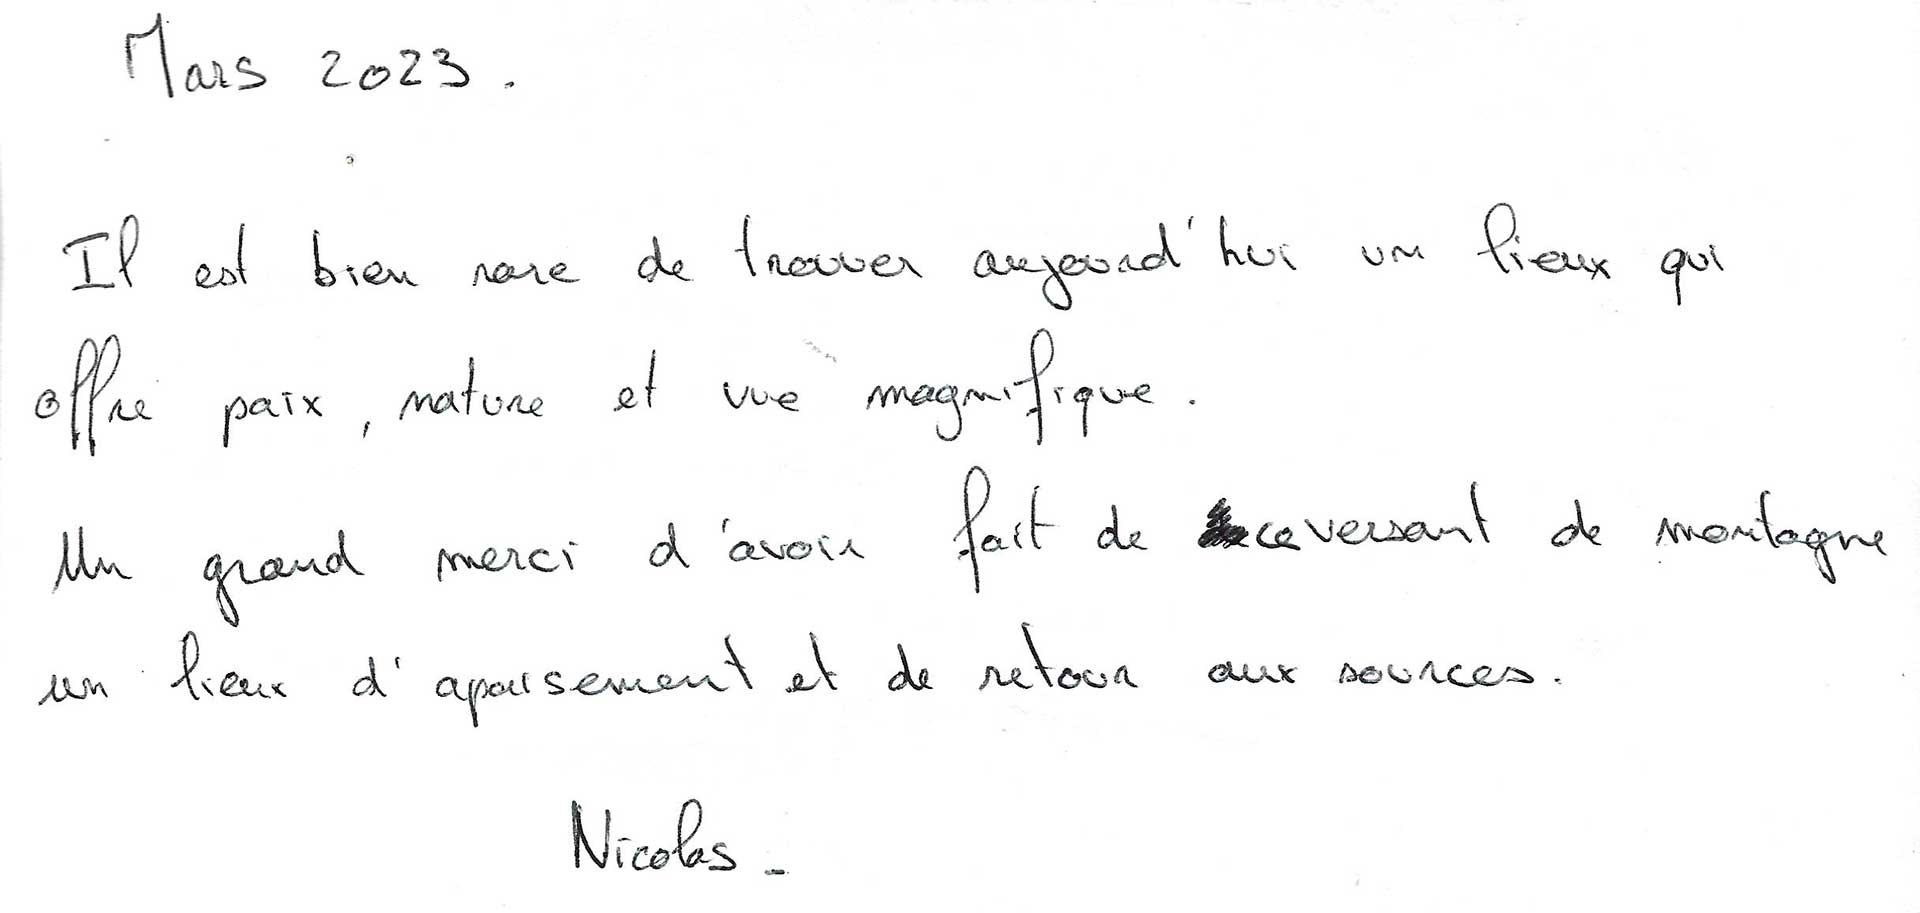 Mars 2023.
Il est bien rare de trouver aujourd'hui un lieux qui
offre paix, nature et vue magnifique.
Un grand merci d'avoir fait de ce versant de montagne
un lieux d'apaisement et de retour aux sources.
Nicolas.